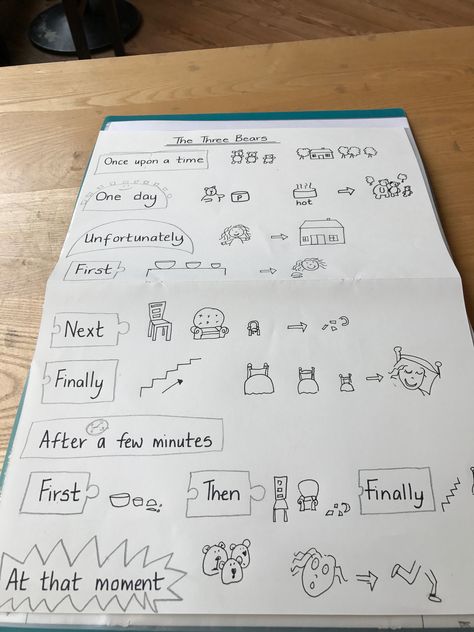 The Three Bears
Once upon a time
One day
P
hot
Unfortunately
First
Next
Finally
After a few minutes
First Then Finally
At that moment